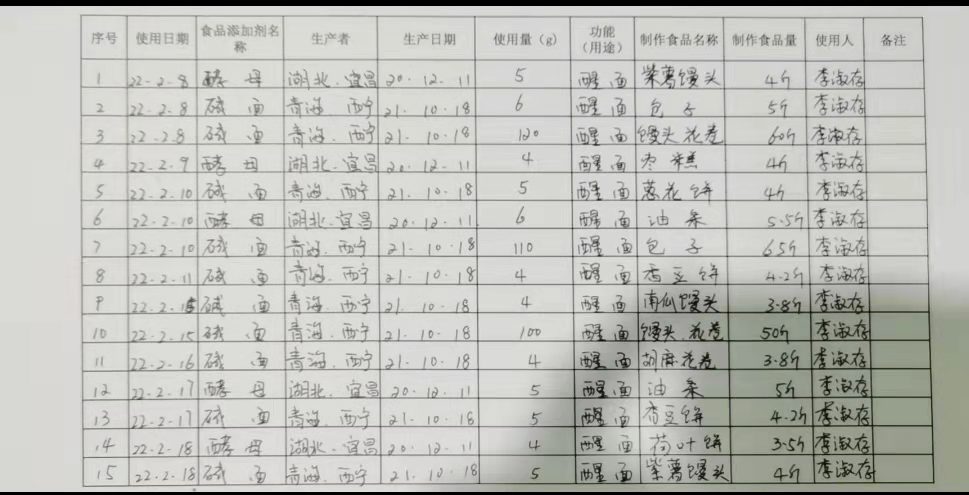 序号 使用日期 食品添加剂名称 生产者 生产日期 使用量（g） 功能（用途） 制作食品名称 制作食品量 使用人 备注
1 22-2-8 酵母 湖北.宜昌 20.12.11 5 醒面 紫薯馒头 4斤 李淑存
2 22-2-8 碱面 青海.西宁 21.10.18 6 醒面 包子 5斤 李淑存
3 22-2-8 碱面 青海.西宁 21.10.18 120 醒面 馒头.花卷 60斤 李淑存
4 22-2-9 酵母 湖北.宜昌 20.12.11 4 醒面 枣糕 4斤 李淑存
5 22-2-10 碱面 青海.西宁 21.10.18 5 醒面 葱花饼 4斤 李淑存
6 22-2-10 酵母 湖北.宜昌 20.12.11 6 醒面 油条 5.5斤 李淑存
7 22-2-10 碱面 青海.西宁 21.10.18 110 醒面 包子 65斤 李淑存
8 22-2-11 碱面 青海.西宁 21.10.18 4 醒面 香豆饼 4.2斤 李淑存
9 22-2-15 碱面 青海.西宁 21.10.18 4 醒面 南仙馒头 3.8斤 李淑存
10 22-2-15 碱面 青海.西宁 21.10.18 100 醒面 馒头.花卷 50斤 李淑存
11 22-2-16 碱面 青海.西宁 21.10.18 4 醒面 胡麻花卷 3.8斤 李淑存
12 22-2-17 酵母 湖北.宜昌 20.12.11 5 醒面 油条 5斤 李淑存
13 22-2-17 碱面 青海.西宁 21.10.18 5 醒面 香豆饼 4.2斤 李淑存
14 22-2-18 酵母 湖北.宜昌 20.12.11 4 醒面 荷叶饼 3.5斤 李淑存
15 22-2-18 碱面 青海.西宁 21.10.18 5 醒面 紫薯馒头 4斤 李淑存